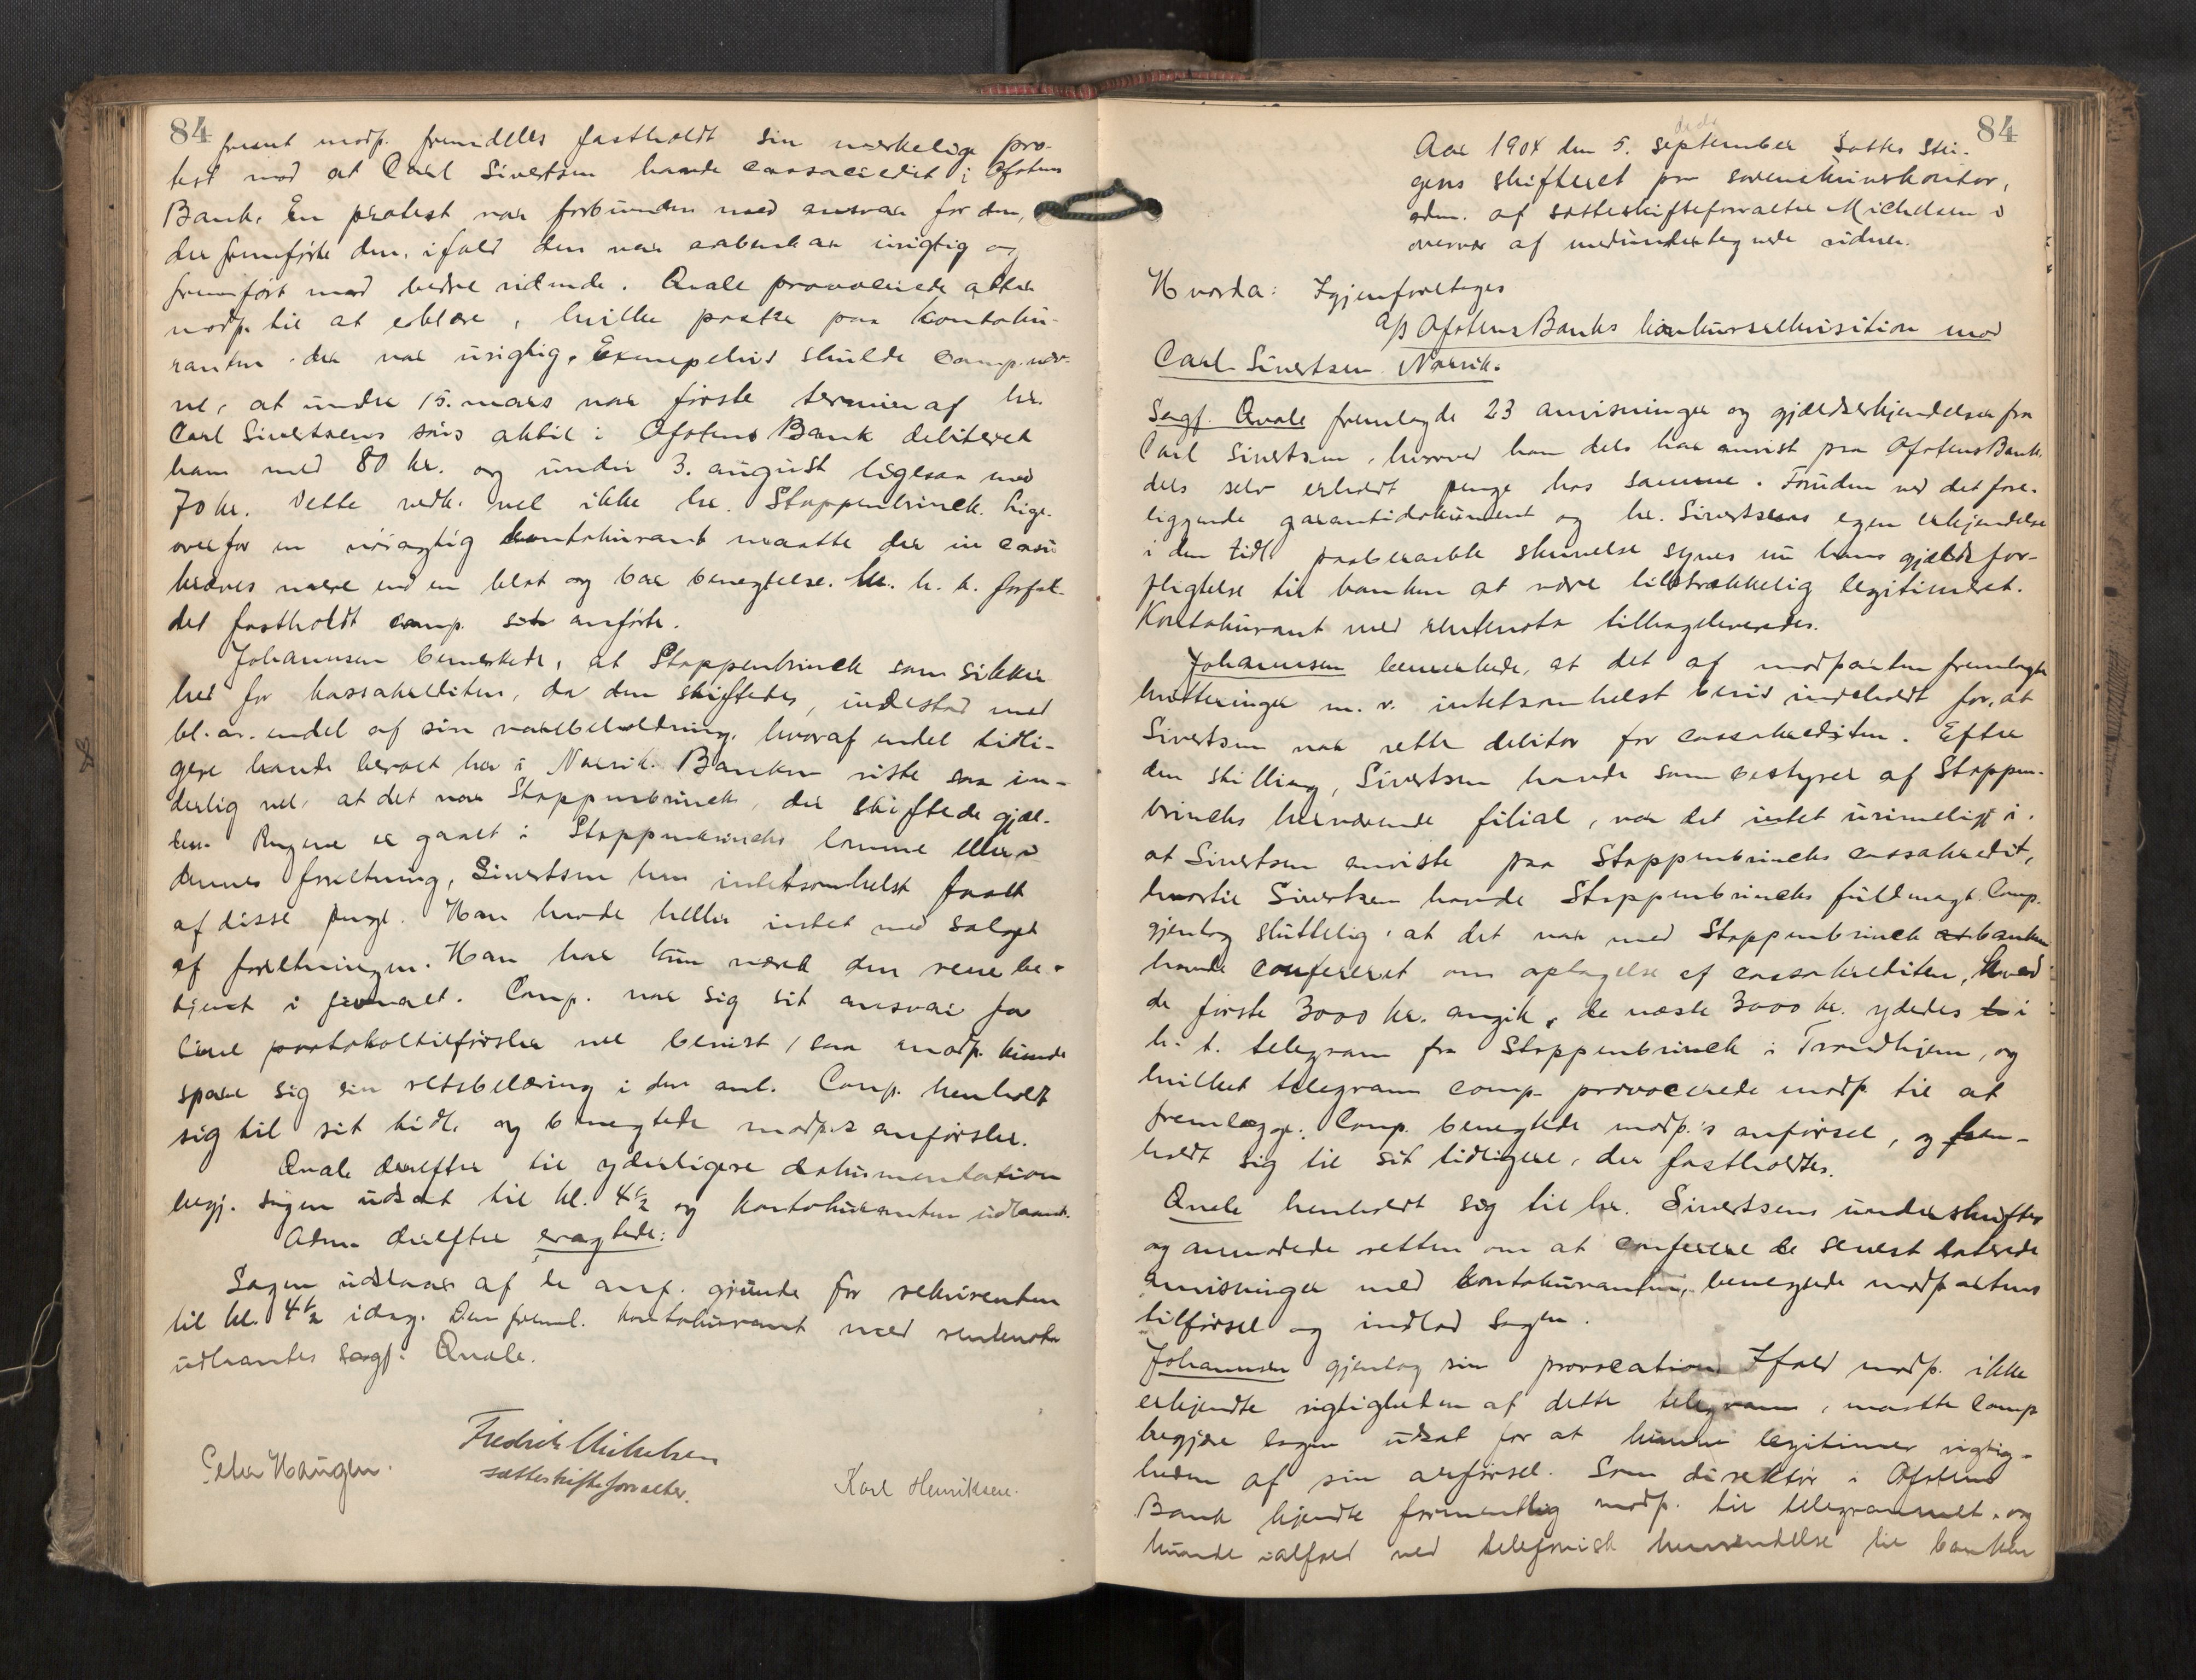 84
fremt modp. fremdeles fastholdt sin mærkelige pro-
test mod at Carl Sivertsen havde cassacredit i Ofotens
Bank. En protest var forbunden med ansvar for den,
der fremførte den, ifald den var aabenbar urigtig og
fremført mod bedre vidende. Qvale provocerede atter
modp. til at erklære, hvilke poster paa kontoku-
ranten der var urigtig. Exempelvis skulde comp. næv-
ne, at under 15. mars var første termin af hr.
Carl Sivertsens aktie i Ofotens Bank debiteret
ham med 80 kr. og under 3. august ligesaa med
70 kr. Dette vedk. vel ikke hr. Stoppenbrinck. Lige-
overfor en nøiagtig kontokurant maatte der in casu
kræves mere end en blot og bar benegtelse. I h. h. forhol-
det fastholdt comp. sit anførte.
Johannsen bemerkede, at Stoppenbrinck som sikker-
hed for kassakrediten, da den skiftedes, indestod med
bl. a. endel af sin varebeholdning, hvoraf endel tidli-
gere havde beroet her i Narvik. Banken vidste saa in-
derlig vel, at det var Stoppenbrinck, der skiftede gjæl-
den. Pengene er gaaet i Stoppenbrincks lomme eller i
dennes forretning, Sivertsen har intetsomhelst faaet
af disse penge. Han havde heller intet med salget
af forretningen. Han har kun været den rene be-
tjent i firmaet. Comp. var sig sit ansvar for
sine protokoltilførsler vel bevist, saa modp. kunde
spare sig sin retsbelæring i den anl. Comp. henholdt
sig til sit tidl. og benegtede modp.s anførsler.
Qvale derefter til yderligere dokumentation
begj. sagen udsat til kl. 4½ og kontokuranten udlaant.
Adm. derefter eragtede:
Sagen udstaar af de anf. grunde for rekvirenten
til kl. 4½ idag. Den freml. kontokurant med rentenota
udlaantes sagf. Qvale.
Fredrik Michelsen
Peder Haugen.
sætteskifteforvalter.
Karl Henriksen.
84
Aar 1904 den 5. september sattes sta-
gens skifteret paa sorenskriverkontor,
adm. af sætteskifteforvalter Michelsen i
overvær af medundertegnede vidner.
Hvorda: Igjenforetages
A/S Ofotens Banks konkursrekvisition mod
Carl Sivertsen Narvik.
Sagf. Qvale fremlagde 23 anvisninger og gjældserkjendelser fra
Carl Sivertsen, hvorved han dels har anvist paa Ofotens Bank,
dels selv erholdt penge hos samme. Foruden ved det fore-
liggende garantidokument og hr. Sivertsens egen erkjendelse
i den tidl. paaberaabte skrivelse synes nu hans gjældsfor-
pligtelse til banken at være tilstrækkelig legitimeret.
Kontokurant med rentenota tilbageleveredes.
Johannsen bemerkede, at det af modparten fremlagte
kvitteringer m. v. intetsomhelst bevis indeholdt for, at
Sivertsen var rette debitor for cassakrediten. Efter
den stilling, Sivertsen havde som bestyrer af Stoppen-
brincks herværende filial, var det intet urimeligt i,
at Sivertsen anviste paa Stoppenbrincks cassakredit,
hvortil Sivertsen havde Stoppenbrincks fuldmagt. Comp.
gjentog sluttelig, at det var med Stoppenbrinck at banken
havde confereret om optagelse af cassakrediten, hvad
de første 3000 kr. angik, de næste 3000 kr. ydedes i
h. t. telegram fra Stoppenbrinck i Trondhjem, og
hvilket telegram comp. provocerede modp. til at
fremlægge. Comp. benegtede modp.'s anførsel, og hen-
holdt sig til sit tidligere, der fastholdtes.
Qvale henholdt sig til hr. Sivertsens underskrifter
og anmodede retten om at conferere de senest daterede
anvisninger med kontokuranten, benegtede modpartens
tilførsel og indlod sagen.
Johannsen gjentog sin provocation. Ifald modp. ikke
erkjendte rigtigheden af dette telegram, maatte comp
begjære sagen udsat for at kunne legitimere rigtig-
heden af sin anførsel. Som direktør i Ofotens
Bank kjendte formentlig modp. til telegrammet, og
kunde ialfald ved telefonisk henvendelse til banken